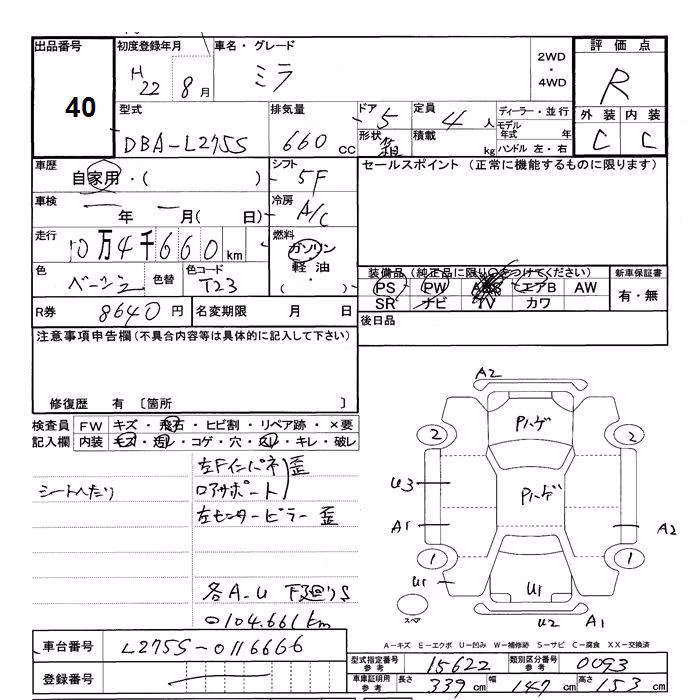 出品番号 初度登録年月 車名・グレード 2WD・4WD 評価点
40 H22 8月 ミラ R
型式 排気量 ドア 5 定員 4人 ディーラー・並行 外装 内装
DBA-L275S 660cc 形状 箱 積載 kg モデル年式 年 ハンドル 左・右 C C
車歴 自家用・( ) シフト 5F セールスポイント (正常に機能するものに限ります)
車検 年 月( 日) 冷房 A/C
走行 10万4千660km 燃料 ガソリン 軽油・( )
色 ベージュ 色替 色コード T23 装備品(純正品に限り○をつけてください) 新車保証書
PS PW エアB AW 有・無
SR ナビ TV カワ
R券 8640円 名変期限 月 日 後日品
注意事項申告欄(不具合内容等は具体的に記入して下さい)
修復歴 有 〔箇所 〕
検査員 FW キズ・飛石・ヒビ割・リペア跡・×要
記入欄 内装 キズ・汚レ・コゲ・穴・スレ・キレ・破レ
左Fインパネ 歪
シートへたり ロアサポート
左センターピラー歪
各A-U 下廻りS
○104.661km
A2
Pハゲ
2 2
U3 Pハゲ
A1 A2
1 1
U1 U1
スペア U2 A1
A-キズ E-エクボ U-凹み W-補修跡 S-サビ C-腐食 XX-交換済
車台番号 L275S-0116666
型式指定番号 参考 15622 類別区分番号 参考 0093
登録番号
車庫証明用 参考 長さ 339cm 幅 147cm 高さ 153cm